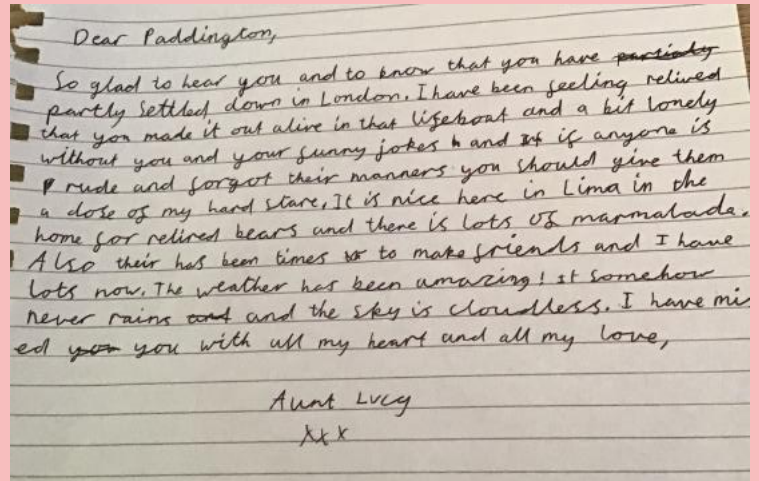 Dear Paddington,
So glad to hear you and to know that you have partialy
partly settled down in London. I have been feeling relived
that you made it out alive in that lifeboat and a bit lonely
without you and your funny jokes h and if if anyone is
rude and forgot their manners you should give them
a dose of my hard stare. It is nice here in Lima in the
home for retired bears and there is lots of marmalade.
Also their has been times to to make friends and I have
lots now. The weather has been amazing! it somehow
never rains and and the sky is cloudless. I have mi
ed you you with all my heart and all my love,
Aunt Lucy
xxx